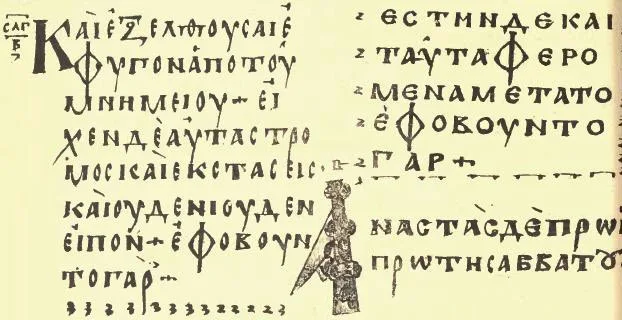 ϹΛΓ
Β
ΚΑΙΕΞΕΛΘΟΥϹΑΙΕ
ΦΥΓΟΝΑΠΟΤΟΥ
ΜΝΗΜΕΙΟΥ+ΕΙ
ΧΕΝΔΕΑΥΤΑϹΤΡΟ
ΜΟϹΚΑΙΕΚϹΤΑϹΕΙϹ
ΚΑΙΟΥΔΕΝΙΟΥΔΕΝ
ΕΙΠΟΝ+ΕΦΟΒΟΥΝ
ΤΟΓΑΡ+
ΕϹΤΗΝΔΕΚΑΙ
ΤΑΥΤΑΦΕΡΟ
ΜΕΝΑΜΕΤΑΤΟ
ΕΦΟΒΟΥΝΤΟ
ΓΑΡ+
ΑΝΑϹΤΑϹΔΕΠΡΩΙ
ΠΡΩΤΗϹΑΒΒΑΤȢ